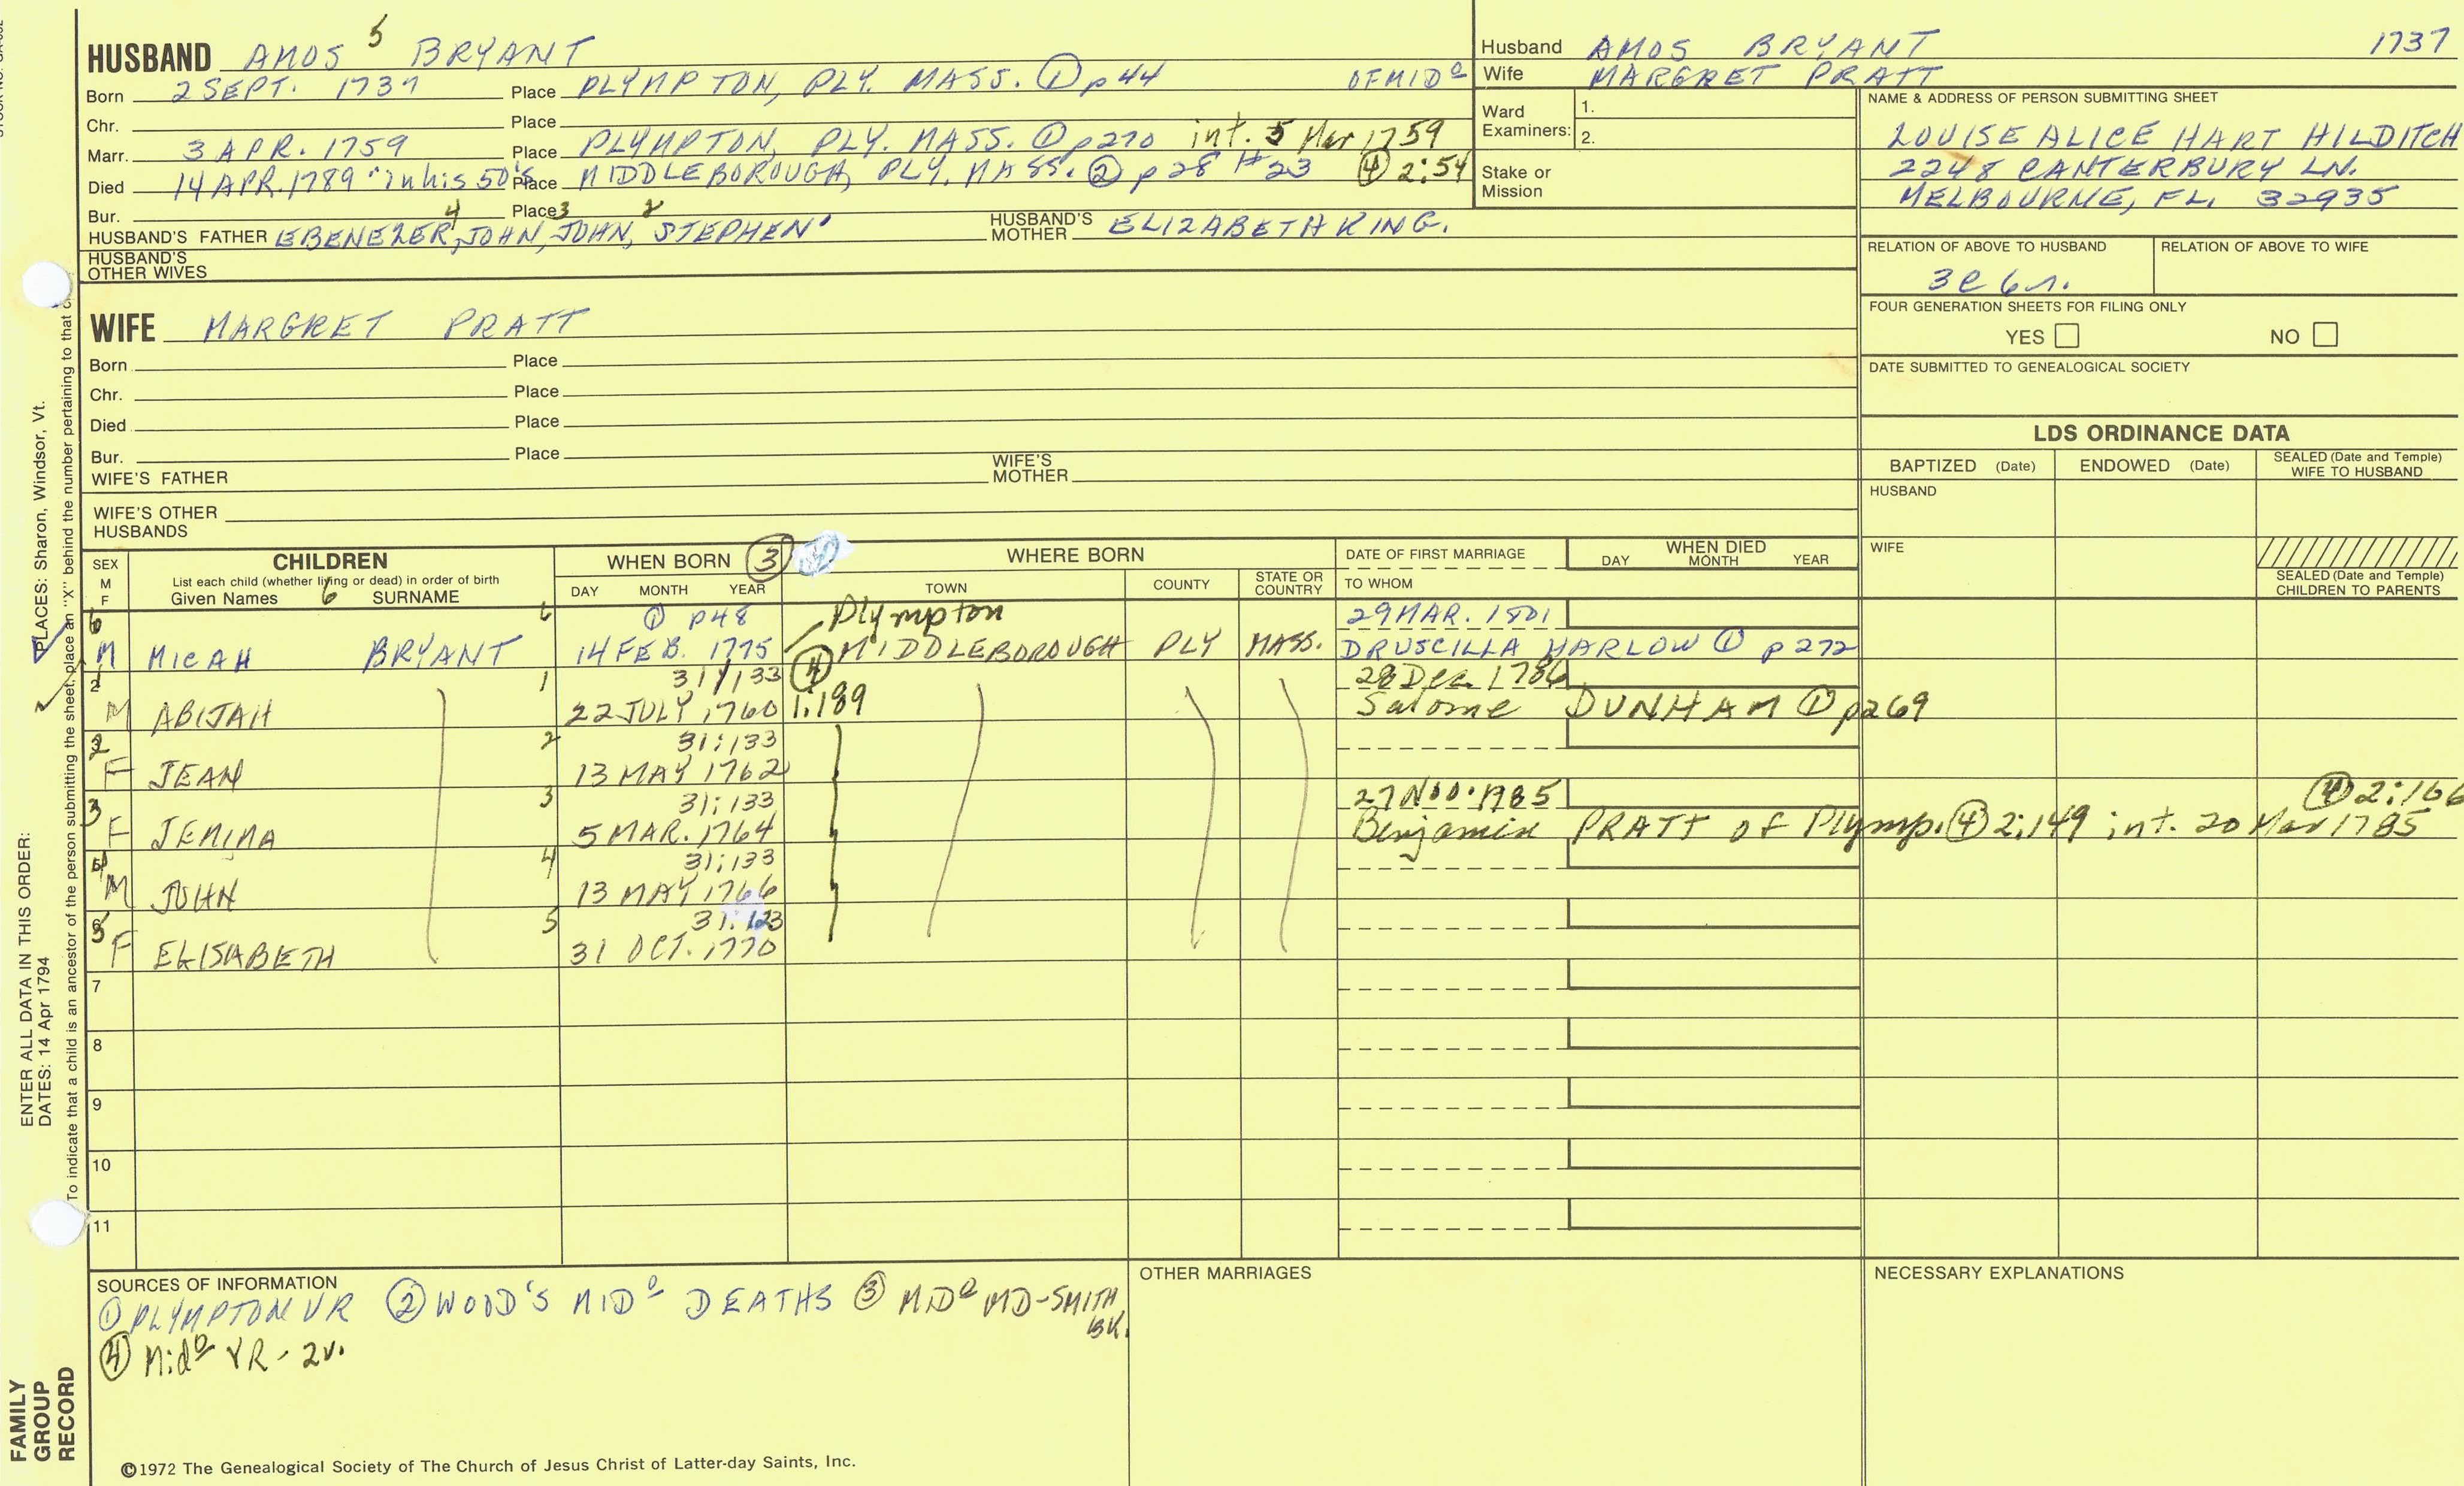 HUSBAND AMOS 5 BRYANT
Born 2 SEPT. 1737 Place PLYMPTON, PLY. MASS. ① p44 OF MIDᵒ
Chr. Place
Marr. 3 APR. 1759 Place PLYMPTON, PLY. MASS. ① p270 int. 5 Mar 1759
Died 14 APR. 1789 "in his 50's Place MIDDLEBOROUGH, PLY. MASS. ② p28 #23 ④ 2:54
Bur. Place
HUSBAND'S FATHER EBENEZER, 4 JOHN, 3 JOHN, 2 STEPHEN' HUSBAND'S MOTHER ELIZABETH KING.
HUSBAND'S OTHER WIVES
Husband AMOS BRYANT 1737
Wife MARGRET PRATT
Ward Examiners: 1.
2.
Stake or Mission
NAME & ADDRESS OF PERSON SUBMITTING SHEET
LOUISE ALICE HART HILDITCH
2248 CANTERBURY LN.
MELBOURNE, FL. 32935
RELATION OF ABOVE TO HUSBAND RELATION OF ABOVE TO WIFE
FOUR GENERATION SHEETS FOR FILING ONLY
YES NO
DATE SUBMITTED TO GENEALOGICAL SOCIETY
WIFE MARGRET PRATT
Born Place
Chr. Place
Died Place
Bur. Place
WIFE'S FATHER WIFE'S MOTHER
WIFE'S OTHER HUSBANDS
LDS ORDINANCE DATA
BAPTIZED (Date) ENDOWED (Date) SEALED (Date and Temple) WIFE TO HUSBAND
HUSBAND
WIFE
SEALED (Date and Temple) CHILDREN TO PARENTS
SEX M F
CHILDREN
List each child (whether living or dead) in order of birth
Given Names 6 SURNAME
WHEN BORN ③
DAY MONTH YEAR
WHERE BORN
TOWN COUNTY STATE OR COUNTRY
DATE OF FIRST MARRIAGE
TO WHOM
WHEN DIED
DAY MONTH YEAR
6 6 ① p48 Plympton 29 MAR. 1801
M MICAH BRYANT 14 FEB. 1775 MIDDLEBOROUGH PLY MASS. DRUSCILLA HARLOW ① p272
1 1 31/133 ④ 28 Dec. 1786
M ABIJAH 22 JULY 1760 1:189 Salome DUNHAM ① p269
2 2 31:133
F JEAN 13 MAY 1762
3 3 31:133 27 Nov. 1785 ④ 2:166
F JEMIMA 5 MAR. 1764 Benjamin PRATT of Plymp. ④ 2:149 int. 20 Mar 1785
4 4 31:133
M JOHN 13 MAY 1766
5 5 31:123
F ELISABETH 31 OCT. 1770
7
8
9
10
11
SOURCES OF INFORMATION
① PLYMPTON VR ② WOOD'S MIDᵒ DEATHS ③ MIDᵒ MD-SMITH BK.
④ Midᵒ VR - 2v.
OTHER MARRIAGES
NECESSARY EXPLANATIONS
©1972 The Genealogical Society of The Church of Jesus Christ of Latter-day Saints, Inc.
FAMILY GROUP RECORD
ENTER ALL DATA IN THIS ORDER:
DATES: 14 Apr 1794
PLACES: Sharon, Windsor, Vt.
To indicate that a child is an ancestor of the person submitting the sheet, place an "X" behind the number pertaining to that